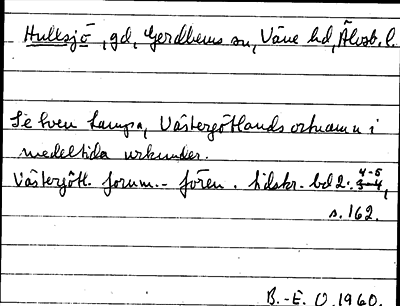 Hullsjö, gd, Gerdhems sn, Väne hd, Älvsb. l.
Se Sven Lampa, Västergötlands ortnamn i
medeltida urkunder.
Västergötl. fornm.-fören. tidskr. bd 2: 4-5 3-4,
s. 162.
B.-E. O. 1960.